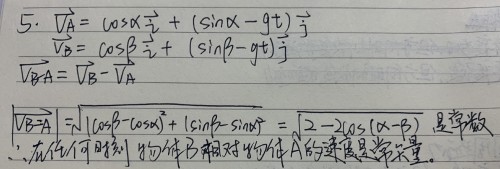 5. V⃗A = cosα i⃗ + (sinα - gt) j⃗
V⃗B = cosβ i⃗ + (sinβ - gt) j⃗
V⃗B-A = V⃗B - V⃗A
|V⃗B-A| = √((cosβ - cosα)² + (sinβ - sinα)²) = √(2 - 2cos(α - β)) 是常数
∴ 在任何时刻物体B相对物体A的速度是常矢量。